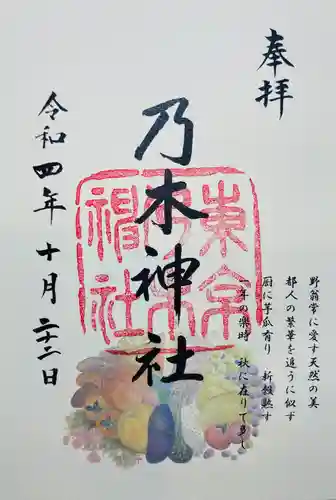 奉拝
乃木神社
令和四年十月二十二日
東京
乃木
神社
野翁常に愛す天然の美
都人の繁華を追うに似ず
厨に芋瓜有り 新穀熟す
一年の楽時 秋に在りて多し